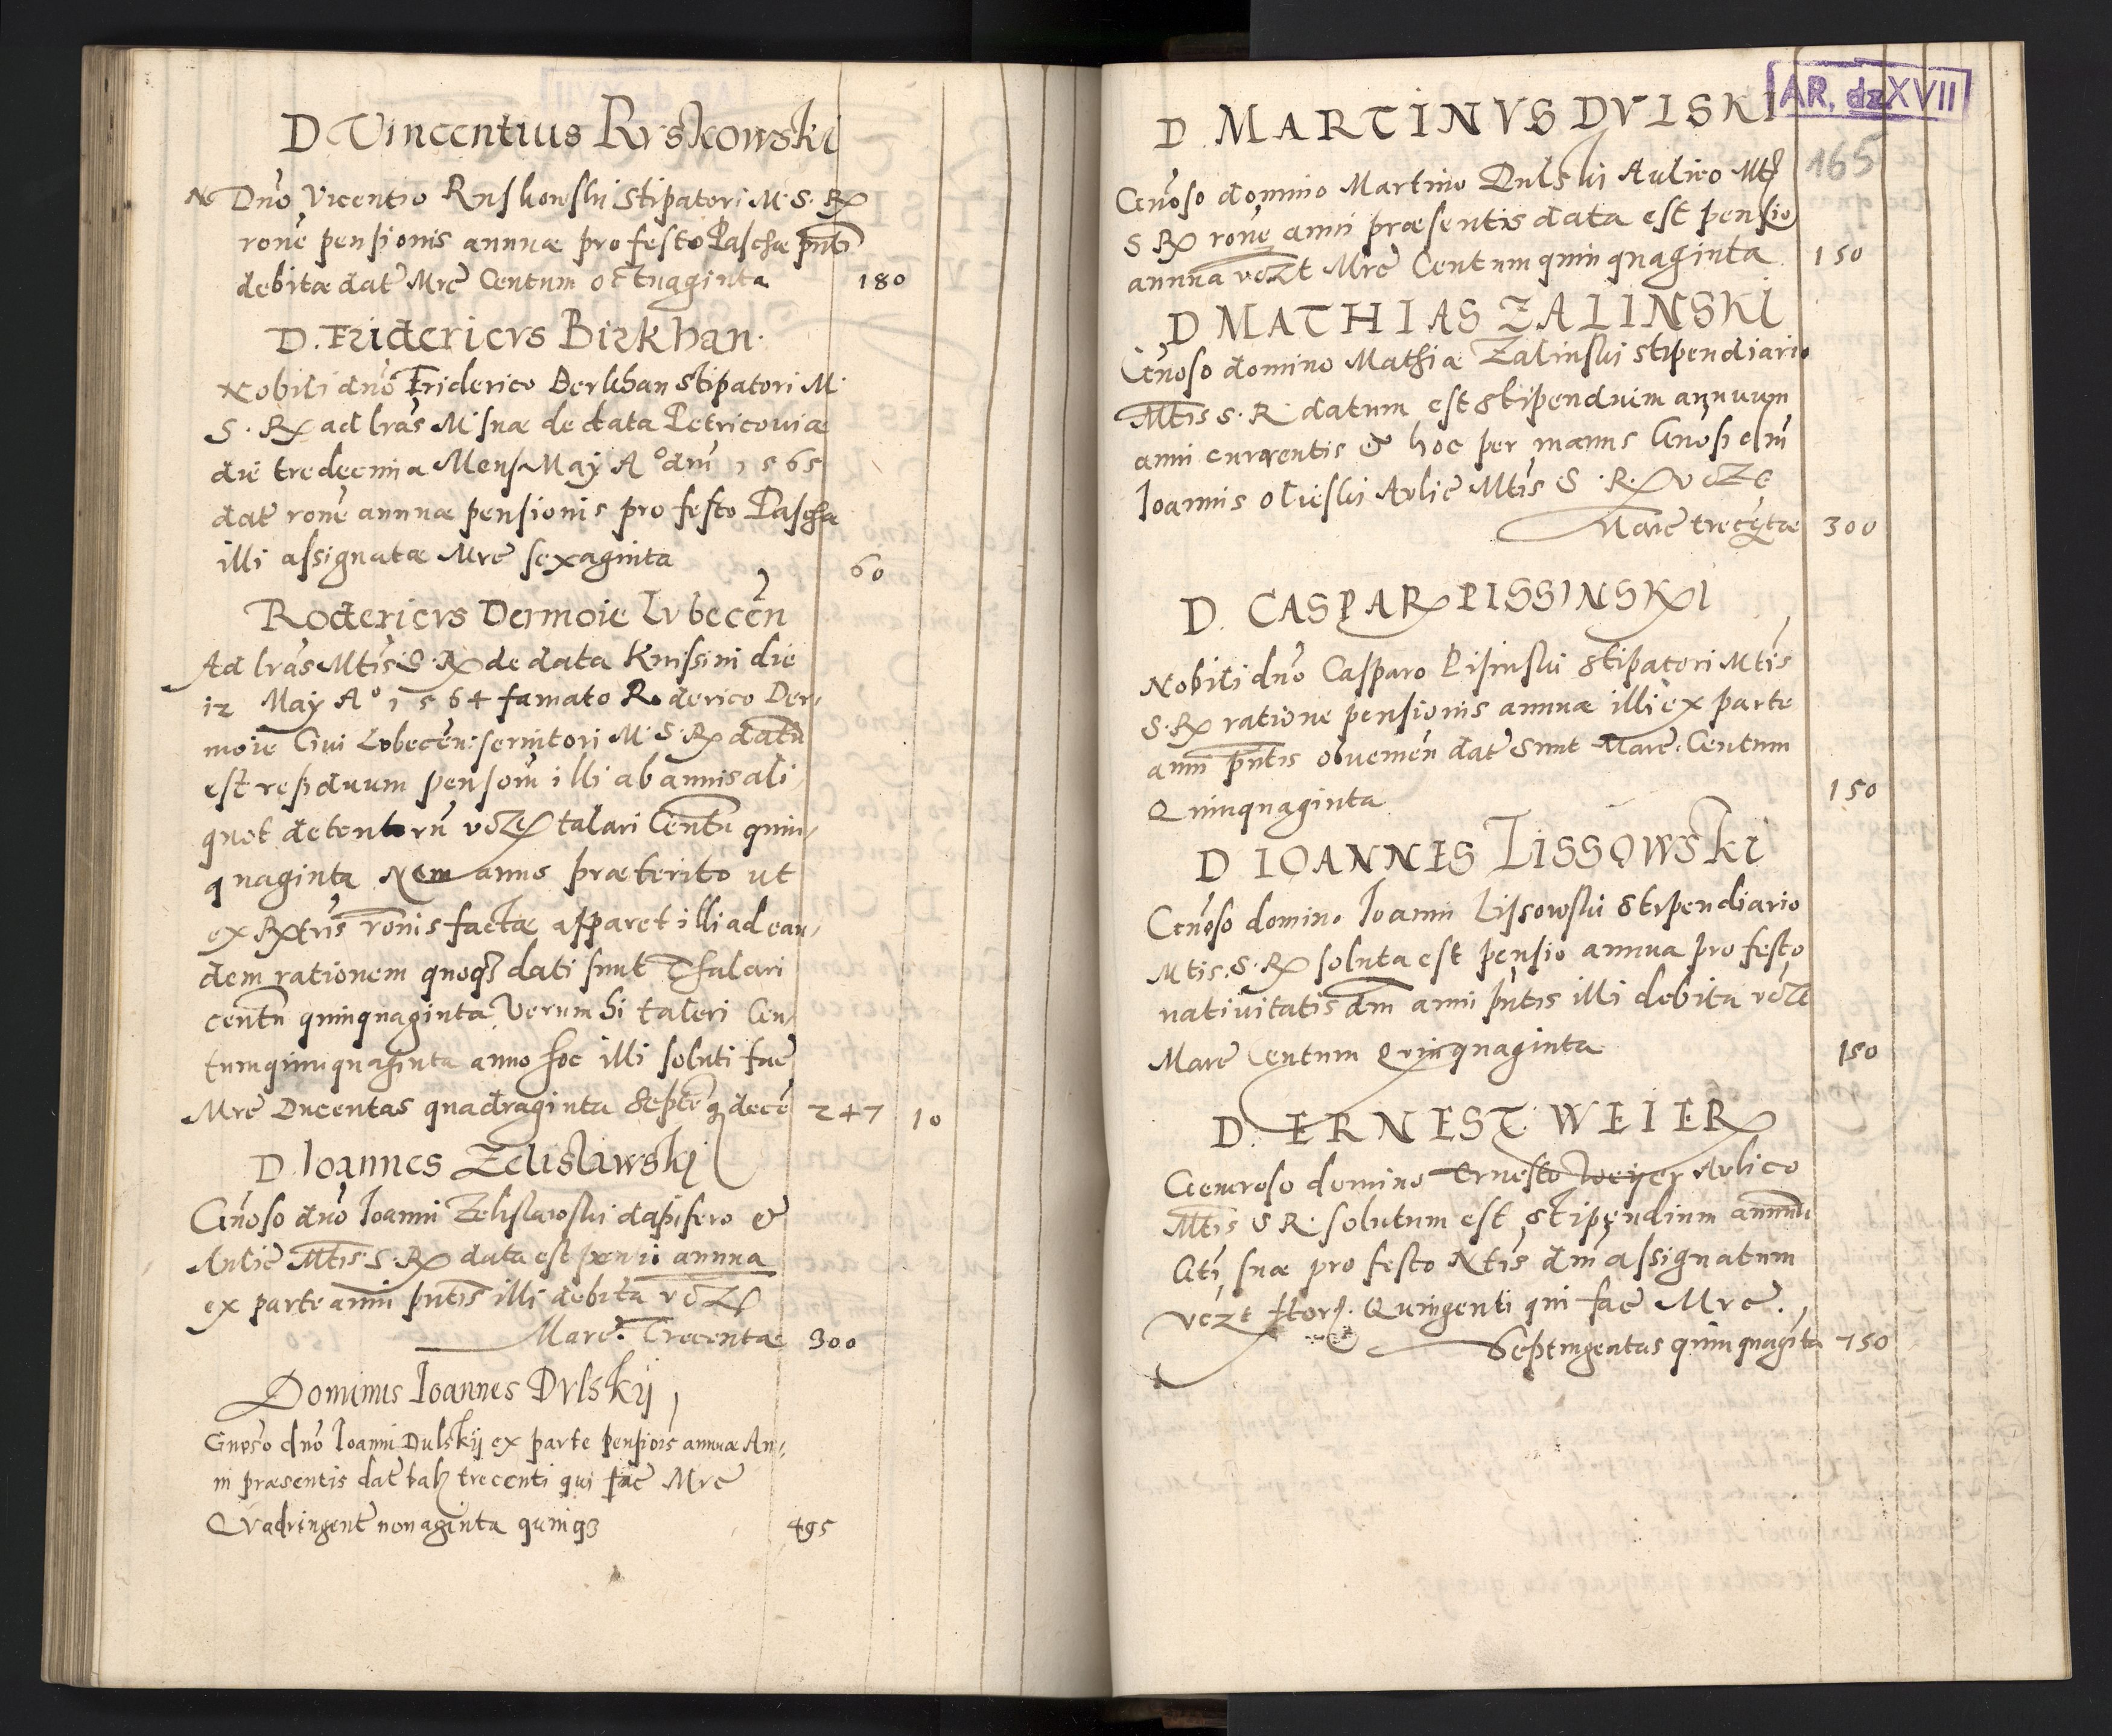 D Vincentius Ryskowski
No Dno Vicentio Ruskowski Stipatori M. S. R
rone pensionis annuæ pro festo Paschæ pnti
debitæ dat Mrc Centum octuaginta 180
D. Fridericvs Birkhan.
Nobili dno Friderico Berkhan stipatori M.
S. R ad lras M suæ de data Petricouiæ
die tredecima Mens May Ao dni 1565
dat rone annuæ pensionis pro festo Pascha
illi assignatæ Mrc sexaginta 60
Rodericvs Dermoie Lvbecen
Ad lras Mtis S. R de data Knissini die
12 May Ao 1564 famato Roderico Der,
moie Ciui Lvbecen: seruitori M. S. R datu
est residuum pensom illi ab annis ali,
quot detentoru vdz talari Centu quin,
quaginta Nem annus præterito ut
ex Rxtris ronis factæ apparet illi ad ean,
dem rationem quoq3 dati sunt Thalari
centu quinquaginta Verum hi taleri Cen,
tum quinquaginta anno hoc illi soluti fuc
Mrc Ducentas quadraginta Septe g decē 247 10
D. Joannes Zelislawski
Gnoso dno Joanni Zelislawski dapifero &
Aulic Mtis S. R data est pensio annua
ex parte anni pntis illi debita vdz
Marc. Trecentæ 300
Dominus Joannes Dvlskij
Gnoso dno Joanni Dulskij ex parte pensiois annuæ An,
ni præsentis dat talz trecenti qui fac Mrc
Qvadringent nonaginta quinq3 495
AR. dz XVII
165
D. MARTINVS DVLSKI
Gnoso domino Martino Dulski Aulico Mtis
S R rone anni præsentis data est pensio
annua vdzt Mrc Centum quinquaginta 150
D MATHIAS ZALINSKI
Gnoso domino Mathiæ Zalinski stipendiario
Mtis S. R. datum est stipendium annuum
anni currentis & hoc per manus Gnosi dni
Joannis olieski Avlic Mtis S. R. vdz
Marc trecetæ 300
D. CASPAR PISSINSKI
Nobili dno Casparo Pisinski stipatori Mtis
S. R ratione pensionis annuæ illi ex parte
anni pntis obuenien dat sunt Marc. Centum
Quinquaginta 150
D IOANNES LISSOWSKI
Gnoso domino Joanni Lissowski stipendiario
Mtis. S. R soluta est pensio annua pro festo
natiuitatis dni anni pntis illi debita vdzt
Marc Centum Qvinquaginta 150
D. ERNEST WEIER
Generoso domino Ernesto Weyer Avlico
Mtis S R. solutum est stipendium annuu
Gti suæ pro festo Ntis dni assignatum
vczt ftor. Quingenti qui fac Mrc.
Septingentas quinquagita 750